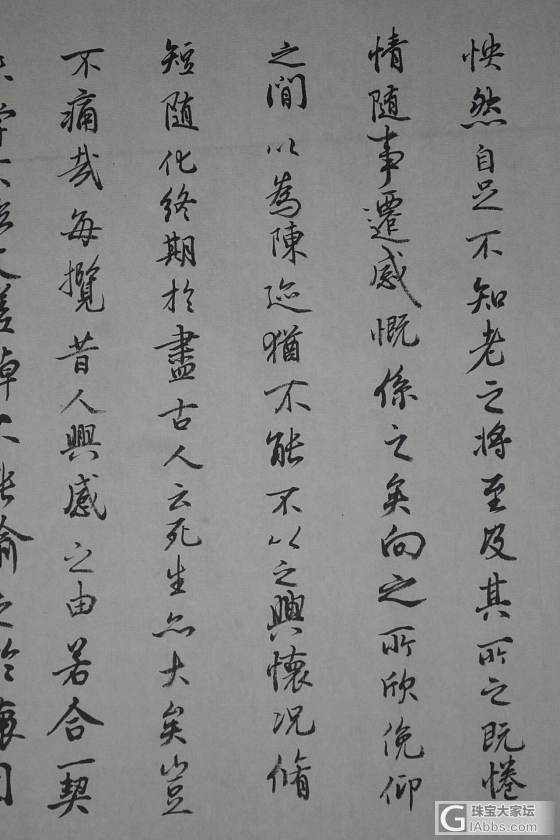 怏然自足不知老之将至及其所之既惓
情随事遷感慨係之矣向之所欣俛仰
之間以為陳迹猶不能不以之興懷况脩
短随化終期於盡古人云死生亦大矣豈
不痛哉每攬昔人興感之由若合一契
不臨文嗟悼不能喻之於懷固
珠宝大家坛
LIAbbs.com